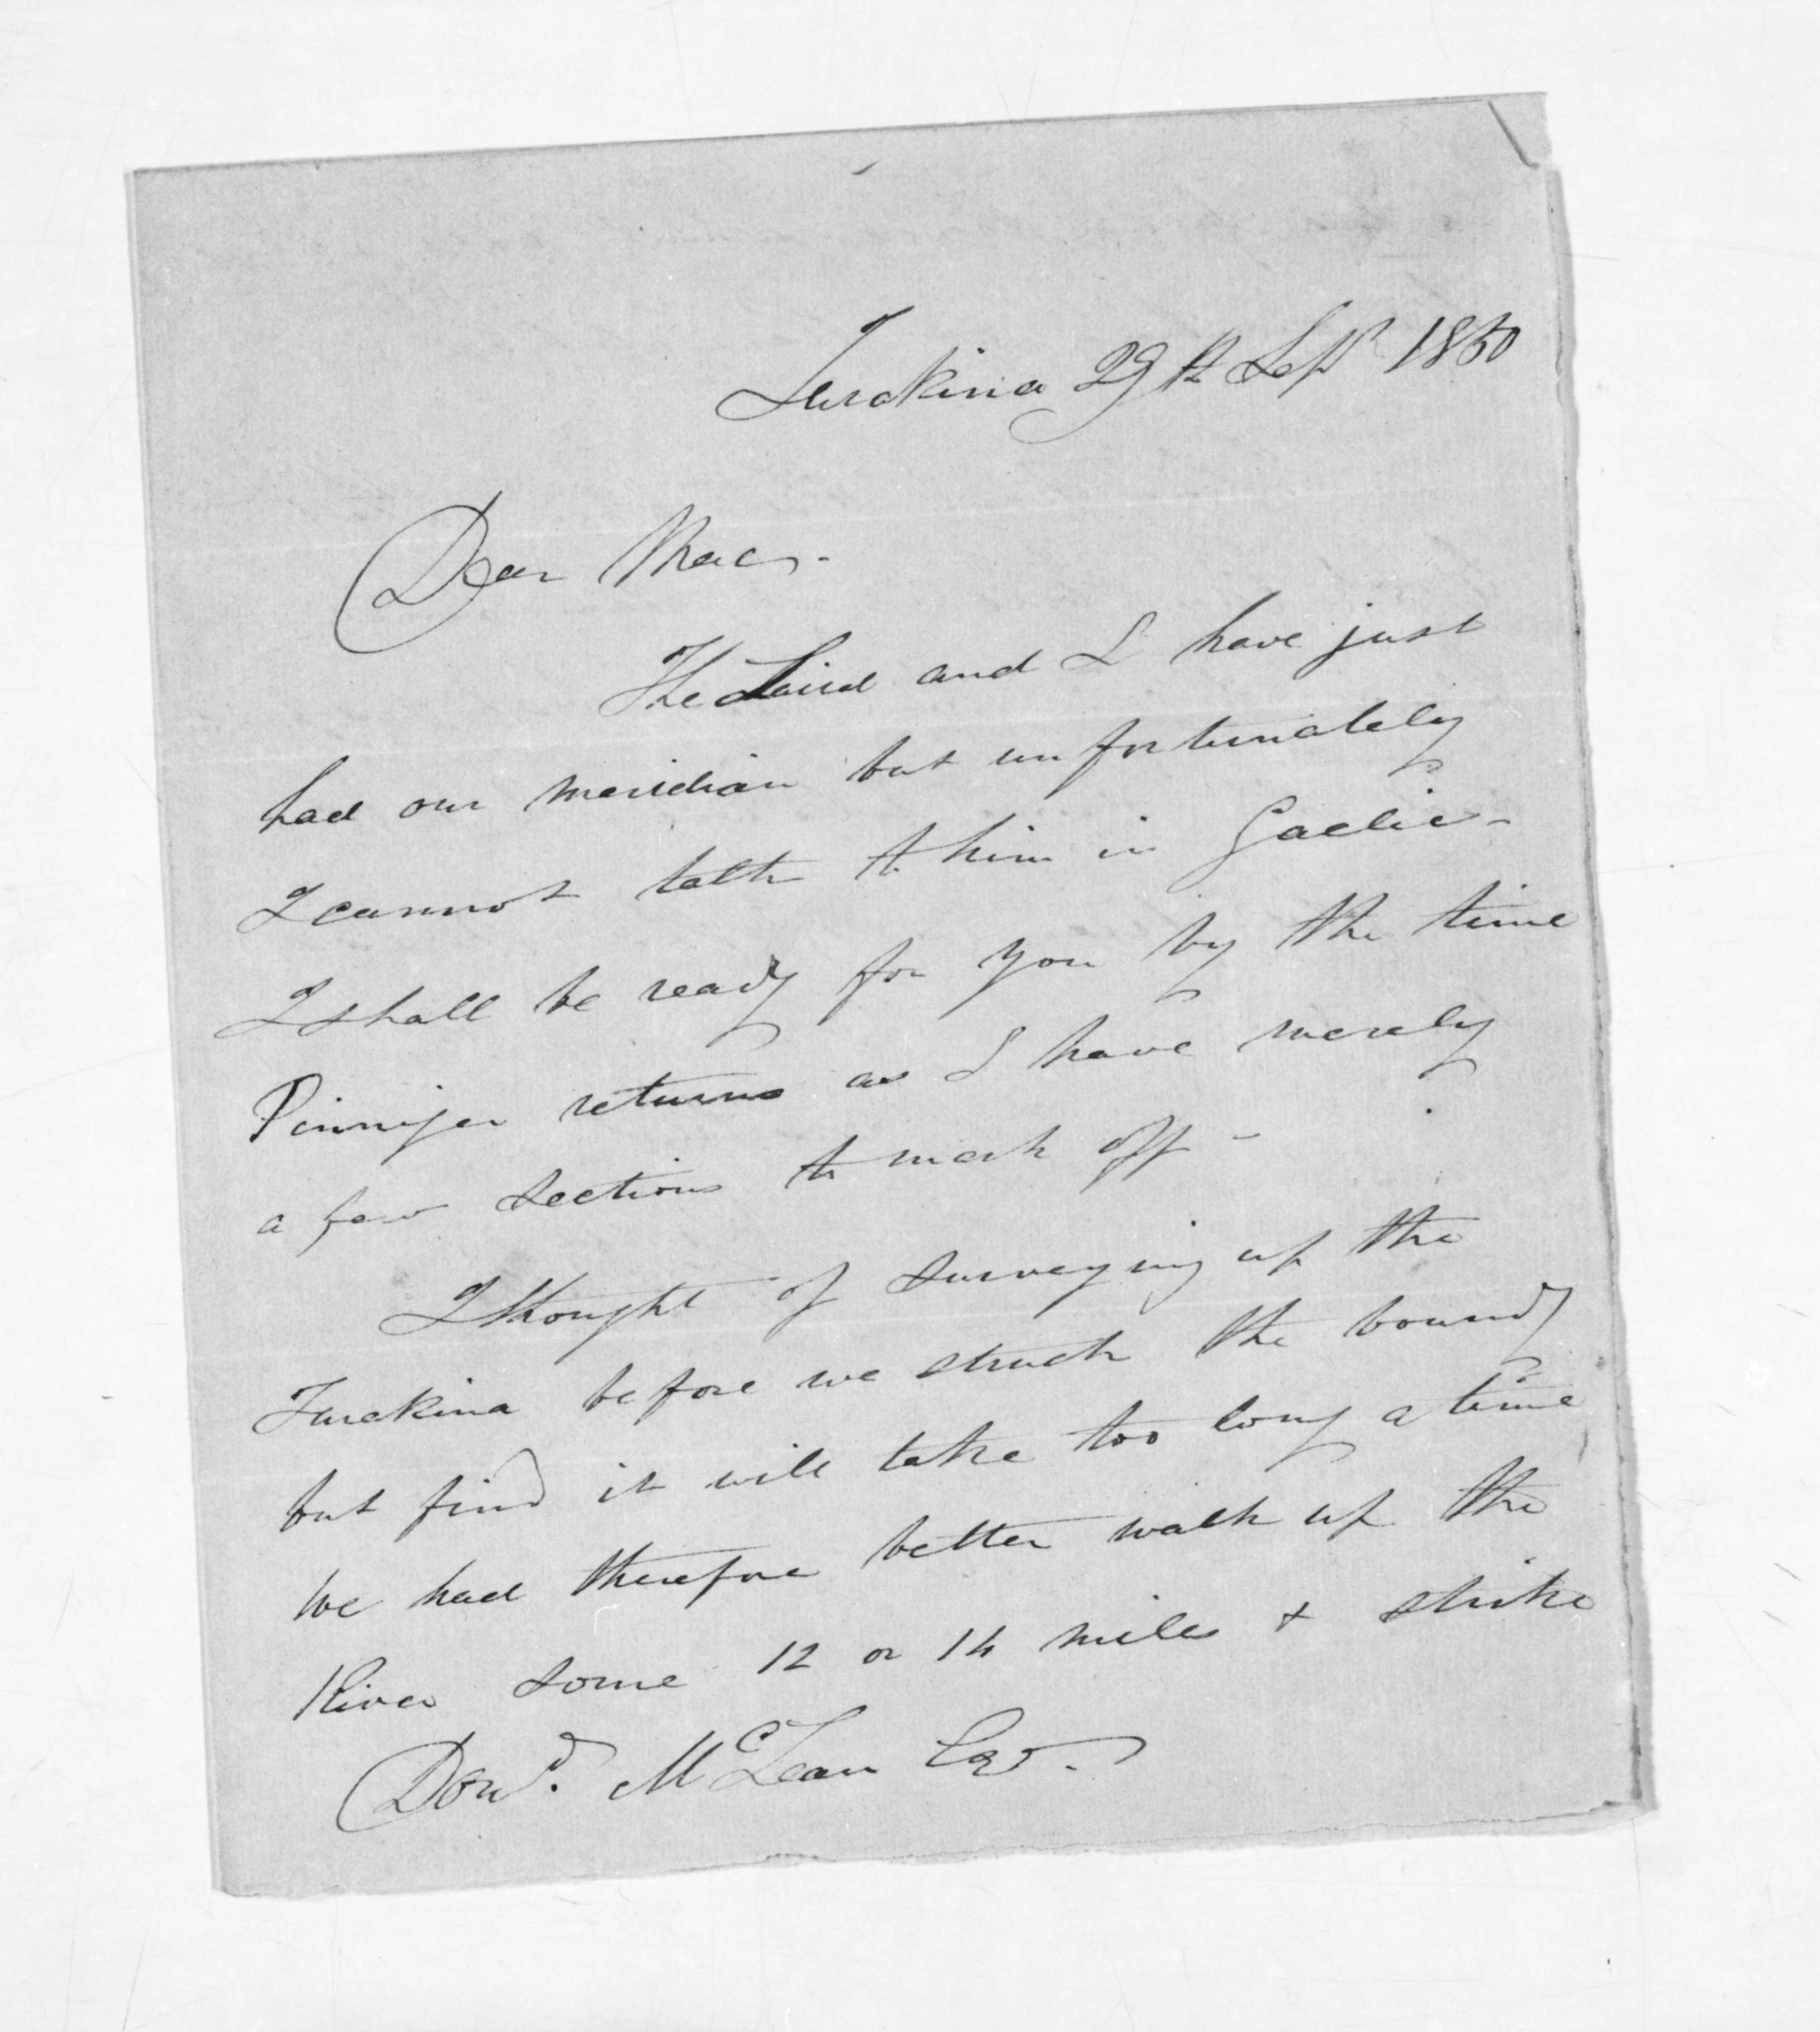 Turakina 29th Sepr 1850
Dear Mac -
The Laird and I have just
had our meridian but unfortunately
I cannot talk to him in Gaelic -
I shall be ready for you by the time
Pinniger returns as I have merely
a few sections to mark off -
I thought of surveying up the
Turakina before we struck the boundy
but find it will take too long a time
We had therefore better walk up the
River some 12 or 14 miles & strike
Dond. McLean Esq.